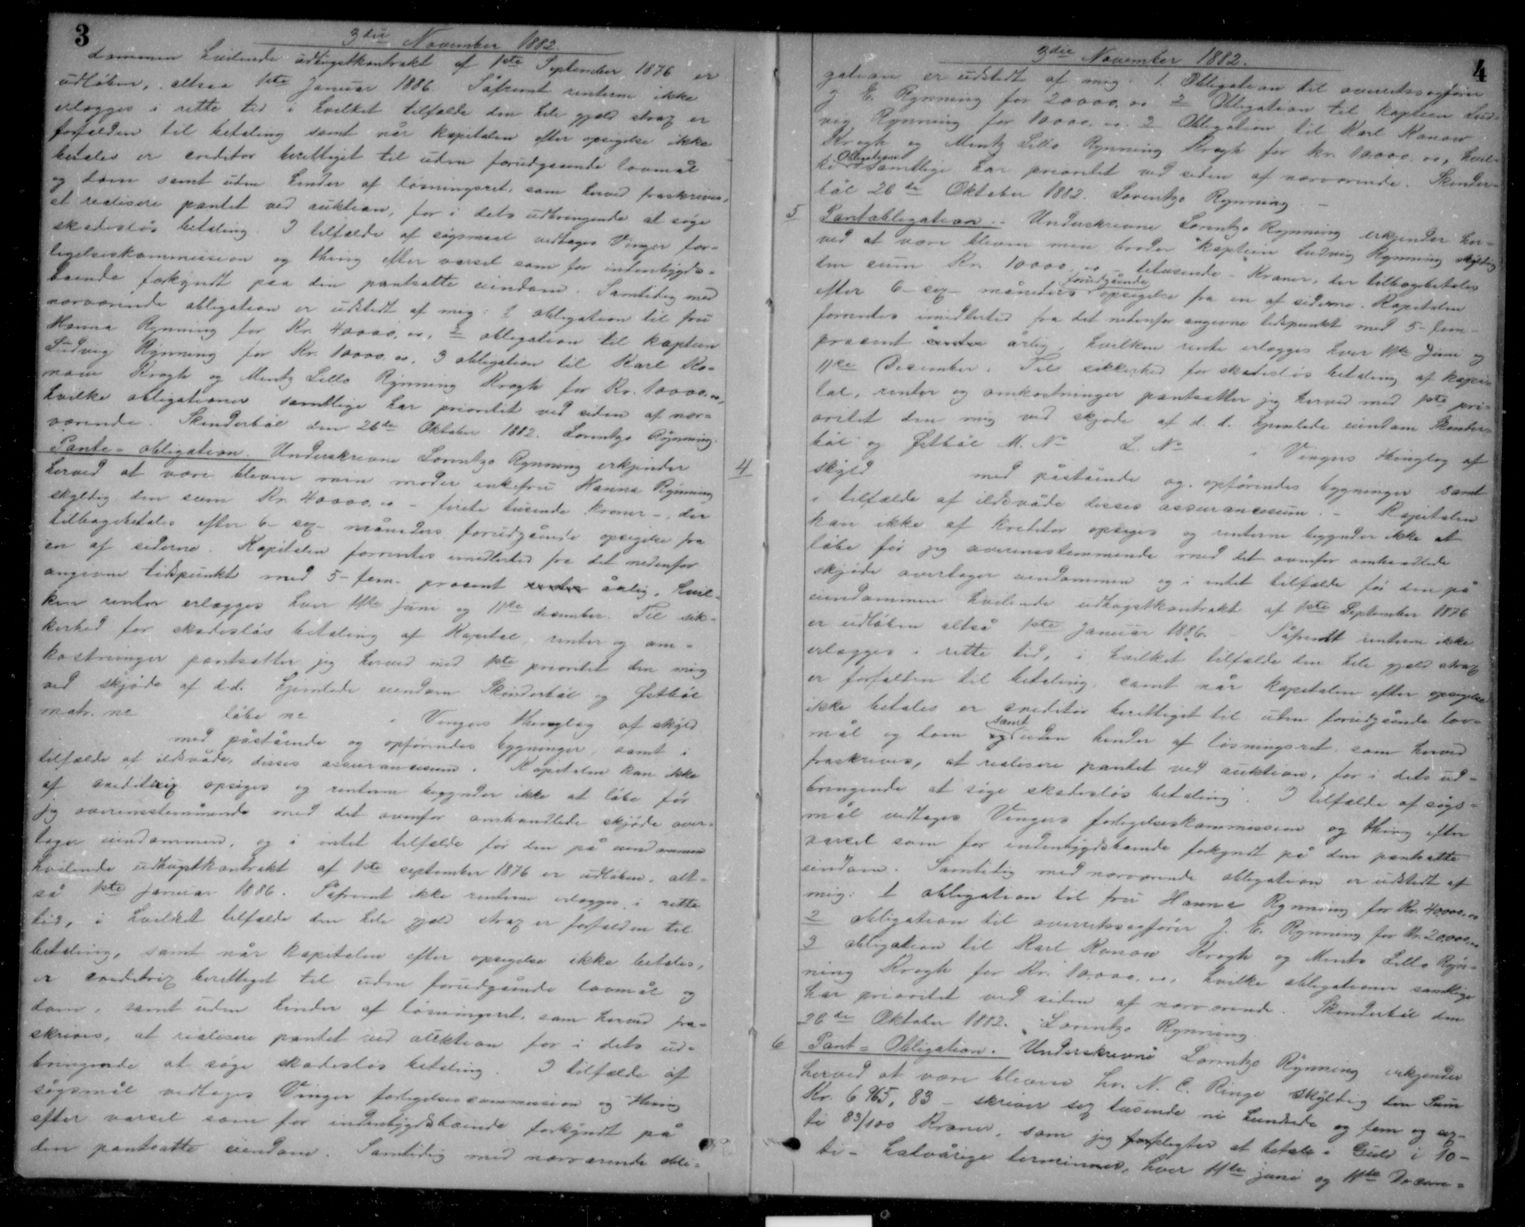 3
3die November 1882.
dommen hvilende udhugstkontrakt af 1ste September 1876 er
udløben, altsaa 1ste Januar 1886. Såfremt renterne ikke
erlægges i rette tid i hvilket tilfælde den hele gjæld strax er
forfalden til betaling samt når kapitalen efter opsigelse ikke
betales er creditor berettiget til uden forudgaaende lovmål
og dom samt uden hinder af løsningsret, som herved fraskrives,
at realisere pantet ved auktion, for i dets udbringende at søge
skadesløs betaling. I tilfælde af søgsmaal vedtages Vinger for-
ligelseskommission og thing efter varsel som for indenbygds-
boende forkyndt paa den pantsatte eiendom. Samtidig med
nærværende obligation er udstedt af mig: 1 obligation til fru
Hanna Rynning for Kr. 40000,00, 2 obligation til kaptein
Ludvig Rynning for Kr. 10000,00, 3 obligation til Karl Ro-
now Krogh og Mentz Lillo Rynning Krogh for Kr. 10000,00,
hvilke obligationer samtlige har prioritet ved siden af nær-
værende. Skinderbøl den 26de Oktober 1882. Lorentzo Rynning.
4
Pante-obligation. Underskrevne Lorentzo Rynning erkjender
herved at være bleven min moder enkefru Hanna Rynning
skyldig den sum Kr. 40000,00 - firti tusende kroner -, der
tilbagebetales efter 6- sex- måneders forudgående opsigelse fra
en af siderne. Kapitalen forrentes imidlertid fra det nedenfor
angivne tidspunkt med 5- fem- procent årlig, hvil-
ken rente erlægges hver 11te Juni og 11te december. Til sik-
kerhed for skadesløs betaling af Kapital, renter og om-
kostninger pantsætter jeg herved med 1ste prioritet den mig
ved skjøde af d.d. hjemlede eiendom Skinderbøl og Østbøl
matr. no løbe no i Vingers thinglag af skyld
med påstående og opførendes bygninger, samt i
tilfælde af ildsvåde, disses assurancesum. Kapitalen kan ikke
af creditrix opsiges og renterne begynder ikke at løbe før
jeg overensstemmende med det ovenfor omhandlede skjøde over-
tager eiendommen, og i intet tilfælde før den på eiendommen
hvilende udhugstkontrakt af 1ste september 1876 er udløben, alt-
så 1ste Januar 1886. Såfremt ikke renterne erlægges i rette
tid, i hvilket tilfælde den hele gjæld strax er forfalden til
betaling, samt når kapitalen efter opsigelse ikke betales,
er creditrix berettiget til uden forudgående lovmål og
dom, samt uden hinder af løsningsret, som herved fra-
skrives, at realisere pantet ved auktion for i dets ud-
bringende at søge skadesløs betaling. I tilfælde af
søgsmål vedtages Vinger forligelsescommission og thing
efter varsel som for indenbygdsboende forkyndt på
den pantsatte eiendom. Samtidig med nærværende obli-
4
3die November 1882.
gation er udstedt af mig: 1 Obligation til overretssagfører
J. E. Rynning for 20000,00 2 Obligation til kaptein Lud-
vig Rynning for 10000,00. 3 Obligation til Karl Ronow
Krogh og Mentz Lillo Rynning Krogh for kr. 10000,00, hvil-
ke Obligationer samtlige har prioritet ved siden af nærværende. Skinder-
bøl 26de Oktober 1882. Lorentzo Rynning -
5
Pantobligation. - Underskrevne Lorentzo Rynning erkjender her-
ved at være bleven min broder kaptein Ludvig Rynning skyldig
den sum Kr. 10000,00 titusende - Kroner, der tilbagebetales
efter 6- sex- måneders forudgående opsigelse fra en af siderne. Kapitalen
forrentes imidlertid fra det nedenfor angivne tidspunkt med 5- fem-
procent årlig, hvilken rente erlægges hver 11te Juni og
11te Desember. Til sikkerhed for skadesløs betaling af kapi-
tal, renter og omkostninger pantsætter jeg herved med 1ste pri-
oritet den mig ved skjøde af d. d. hjemlede eiendom Skinder-
bøl og Østbøl M. No L No i Vingers thinglag af
skyld med påstående og opførendes bygninger samt
i tilfælde af ildsvåde disses assurancesum. - Kapitalen
kan ikke af kreditor opsiges og renterne begynder ikke at
løbe før jeg overensstemmende med det ovenfor omhandlede
skjøde overtager eiendommen og i intet tilfælde før den på
eiendommen hvilende udhugstkontrakt af 1ste September 1876
er udløben altså 1ste Januar 1886. - Såfremt renterne ikke
erlægges i rette tid, i hvilket tilfælde den hele gjæld strax
er forfalden til betaling, samt når kapitalen efter opsigelse
ikke betales er creditor berettiget til uden forudgående lov-
mål og dom samt uden hinder af løsningsret som herved
fraskrives, at realisere pantet ved auktion, for i dets ud-
bringende at søge skadesløs betaling. I tilfælde af søgs-
mål vedtages Vingers forligelseskommission og thing efter
varsel som for indenbygdsboende forkyndt på den pantsatte
eiendom. Samtidig med nærværende obligation er udstedt af
mig: 1 obligation til fru Hanna Rynning for Kr. 40000,00
2 obligation til overretssagfører J. E. Rynning for Kr. 20000,00
3 obligation til Karl Ronow Krogh og Mentz Lillo Ryn-
ning Krogh for Kr. 10000,00, hvilke obligationer samtlige
har prioritet ved siden af nærværende. Skinderbøl den
26de Oktober 1882. Lorentzo Rynning
6
Pant-Obligation. Underskrevne Lorentzo Rynning erkjender
herved at være bleven hr. N. C. Ringe skyldig den Sum
Kr. 6965,83 - skriver sex tusende ni hundrede og fem og sex-
ti 83/100 Kroner, som jeg forpligter at betale i Guld i 10-
ti- halvårige terminer, hver 11te juni og 11te Decem-